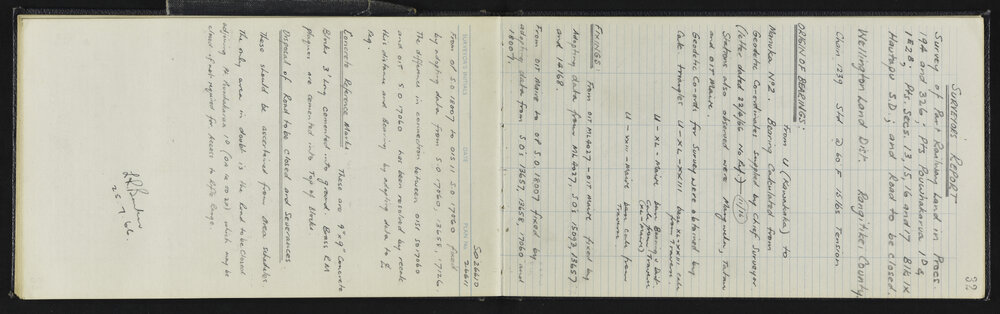 32
SURVEYORS REPORT
Survey of Part Railway Land in Procs.
194 and 326, Pts Pouwhakarua 1D4
182B, Pts. Secs. 13, 15, 16 and 17 Blk IX
Hautapu S.D; and Road to be closed.
Wellington Land Dist. Rangitikei County
Chain 1739 Std @ 60 F 15 lbs Tension
ORIGIN OF BEARINGS:
From U (Kamokaka) to
Manuka No 2. Bearing Calculated from
Geodetic Co-ordinates Supplied by Chief Surveyor
(letter dated 29/6/66 No Ref)
Stations also observed were Mangaweka,
and OIT Maire.
Geodetic Co-ords for Survey were obtained by
Calc. triangles U - XL - XXIII
U - XL - Maire
U - XXIII - Maire
FIXINGS: From OIT ML 4027 - OIT Maire fixed by
adopting data from ML 4027, SO's 15093, 13657
and 18168.
From OIT Maire to OP S.O. 18007 fixed by
adopting data from S.O's 13657, 13658, 17060 and
18007.
SURVEYOR'S INITIALS DATE PLAN No.
SO 26610
26611
From OP S.O. 18007 to OIS II S.O. 17060 fixed
by adopting data from S.O. 17060, 13658, 17126.
The difference in connection between OIS SO 17060
and OIT S.O 17060 has been resolved by recalc
this distance and Bearing by adopting data to
Peg.
Concrete Reference Marks These are 9"x9" Concrete
Blocks 3' long cemented into ground. Brass R.M
plaques are cemented into Top of blocks.
Disposal of Road to be closed and Severances
These should be ascertained from Deed schedules
The only area in doubt is the Road to be closed
adjoining Pt Pouwhakarua 1D which may be
closed if not required for access to Rifle Range.
25-7-66.